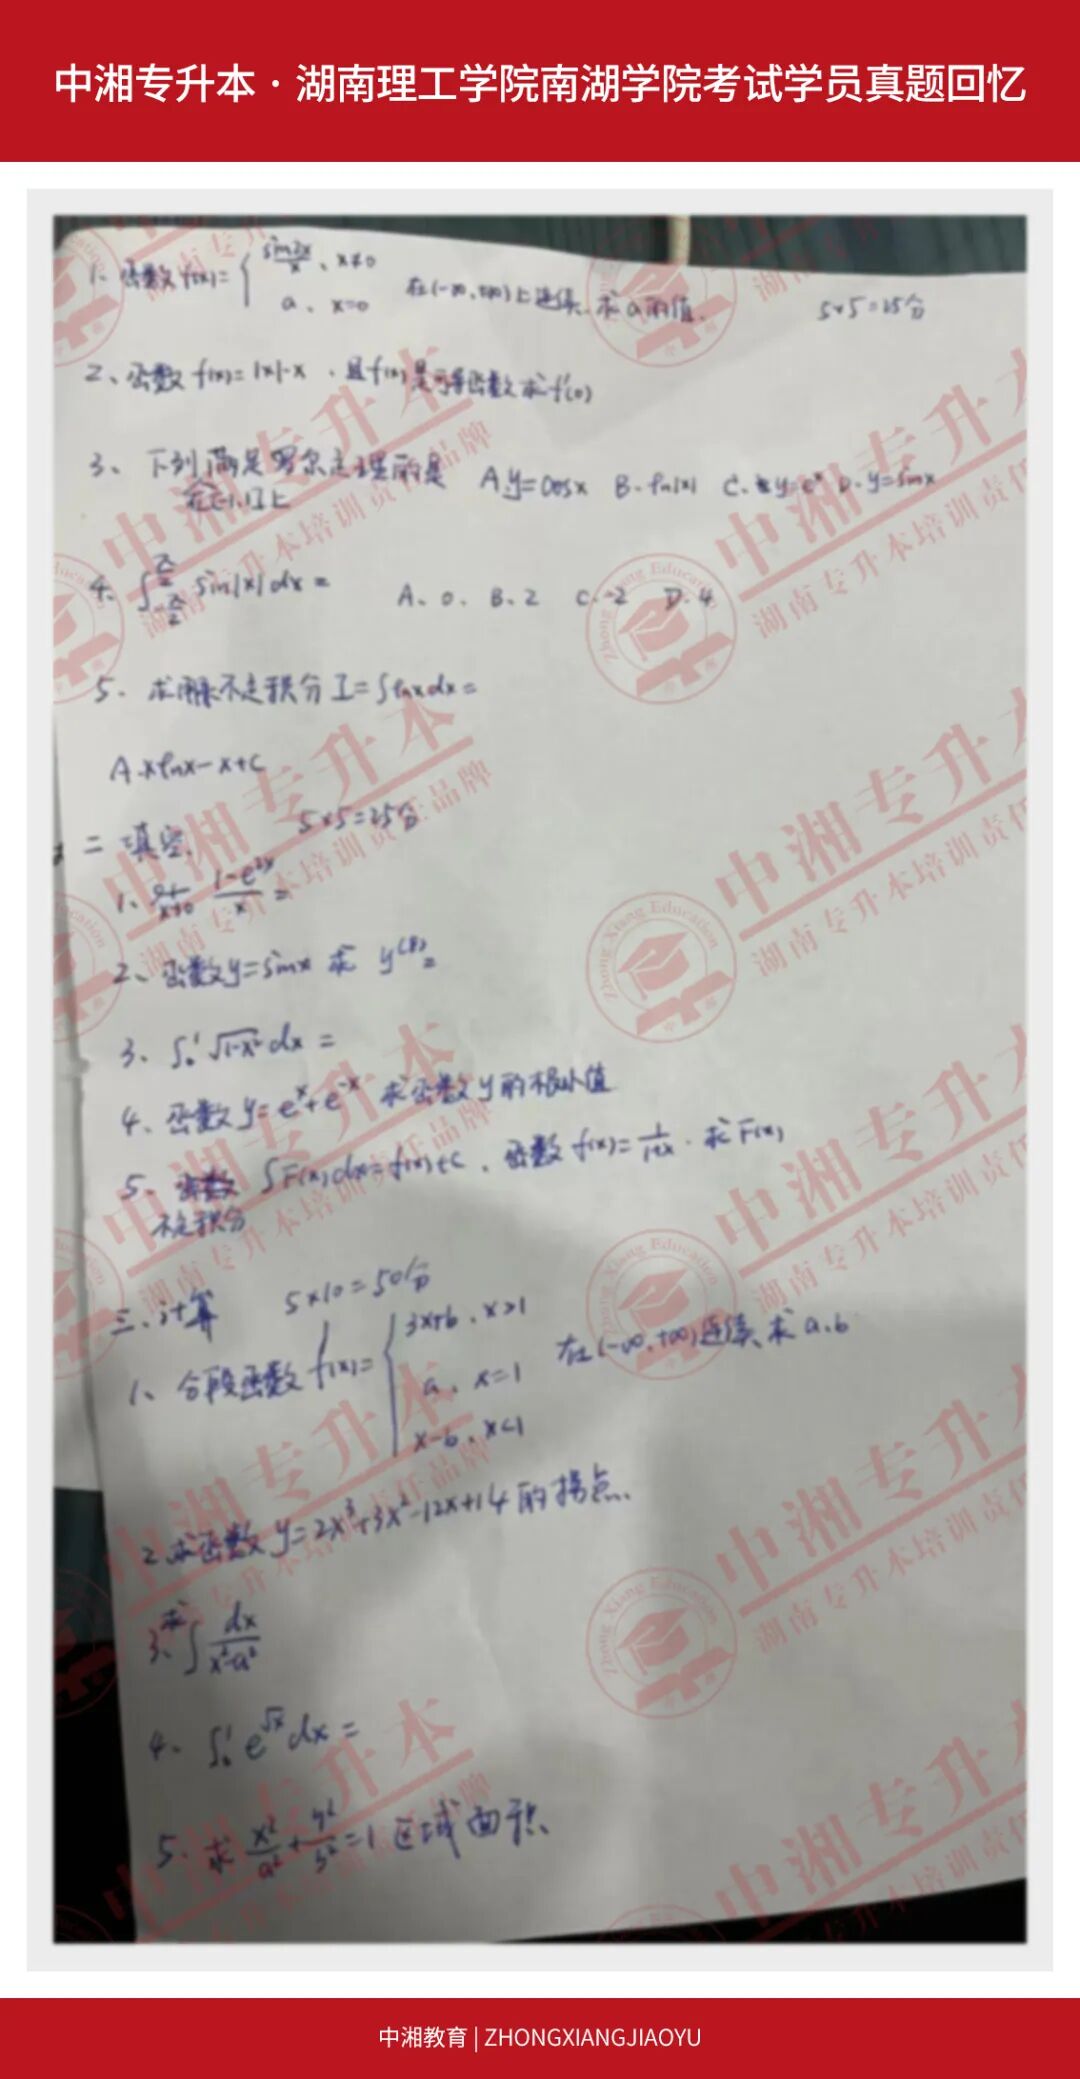 中湘专升本·湖南理工学院南湖学院考试学员真题回忆
1、函数f(x)={ sin2x/x、x≠0
a、x=0 在(-∞,+∞)上连续、求a的值. 5×5=25分
2、函数 f(x)=|x|-x 、且f(x)是可导函数求f'(0)
3、下列满足罗尔定理的是 A.y=cosx B.ln|x| C.y=e^x D.y=sinx
在[-1,1]上
4、∫_{-π/2}^{π/2} sin|x|dx= A、0. B、2 C.-2 D.4
5. 求解不定积分 I=∫lnxdx=
A.xlnx-x+C
二 填空. 5×5=25分
1、lim x→0 (1-e^{2x})/x =
2、函数y=sinx 求 y^(8)=
3、∫_0^1 √1-x² dx =
4、函数y=e^x+e^-x 求函数y的极小值
5、函数 ∫F(x)dx=f(x)+C、函数 f(x)=1/1+x . 求F(x)
不定积分
三、计算 5×10=50分
1、分段函数 f(x)={ 3x+b、x>1
a、x=1 在(-∞,+∞)连续、求a、b
x-b、x<1
2.求函数 y=2x³+3x²-12x+14的拐点、
3、求∫ dx/x²-a²
4、∫_0^1 e^√x dx =
5、求 x²/a²+y²/b²=1 区域面积、
中湘专升本
湖南专升本培训责任品牌
Zhong Xiang Education
中湘教育 | ZHONGXIANGJIAOYU